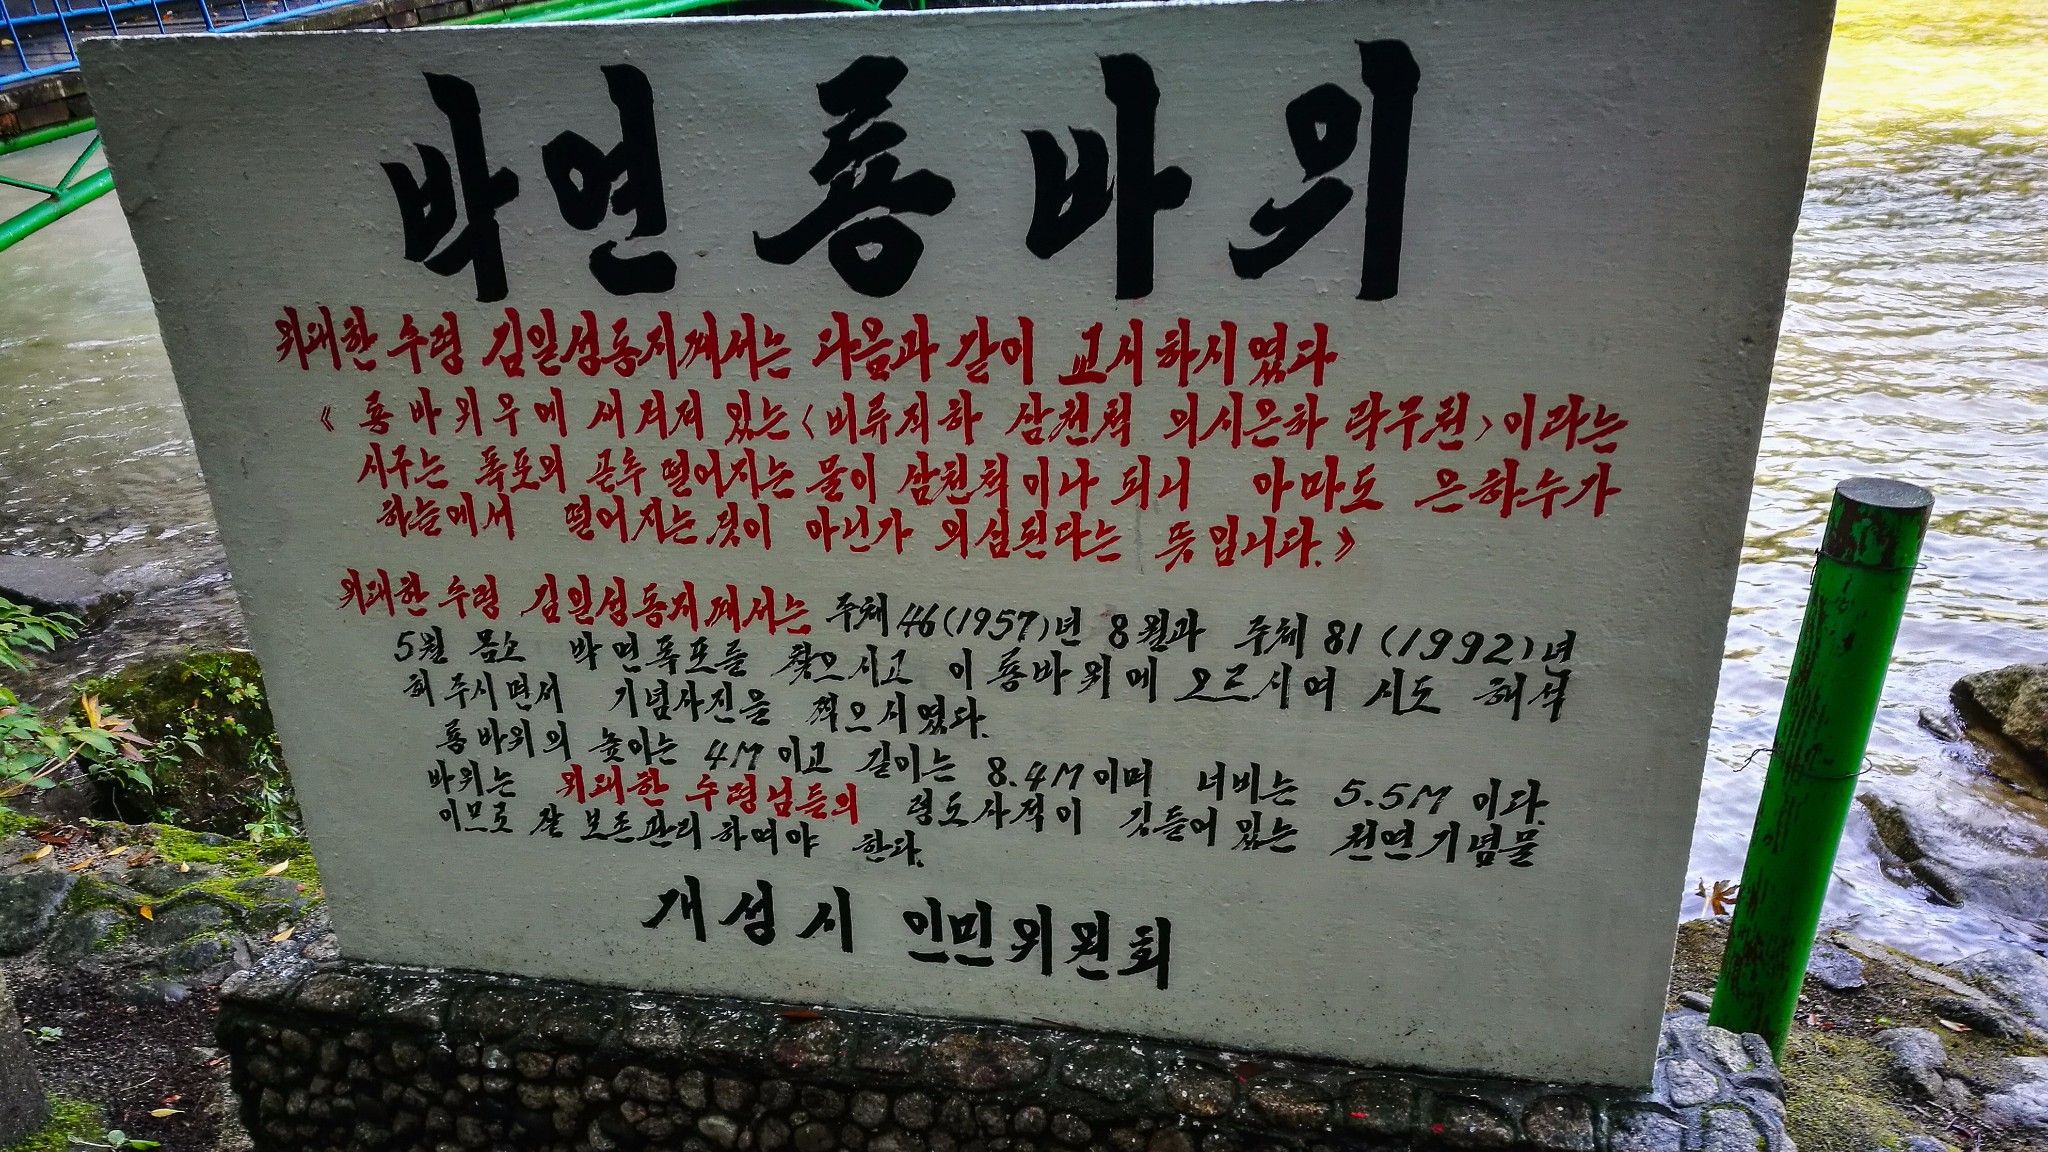 박연룡바위
위대한 수령 김일성동지께서는 다음과 같이 교시하시였다
《룡바위우에 새겨져 있는〈비류직하 삼천척 의시은하 락구천〉이라는
시구는 폭포의 곧추 떨어지는 물이 삼천척이나 되니 아마도 은하수가
하늘에서 떨어지는것이 아닌가 의심된다는 뜻입니다.》
위대한 수령 김일성동지께서는 주체46(1957)년 8월과 주체81(1992)년
5월 몸소 박연폭포를 찾으시고 이 룡바위에 오르시여 시도 해석
해주시면서 기념사진을 찍으시였다.
룡바위의 높이는 4M이고 길이는 8.4M이며 너비는 5.5M이다.
바위는 위대한 수령님들의 령도사적이 깃들어있는 천연기념물
이므로 잘 보존관리하여야 한다.
개성시 인민위원회